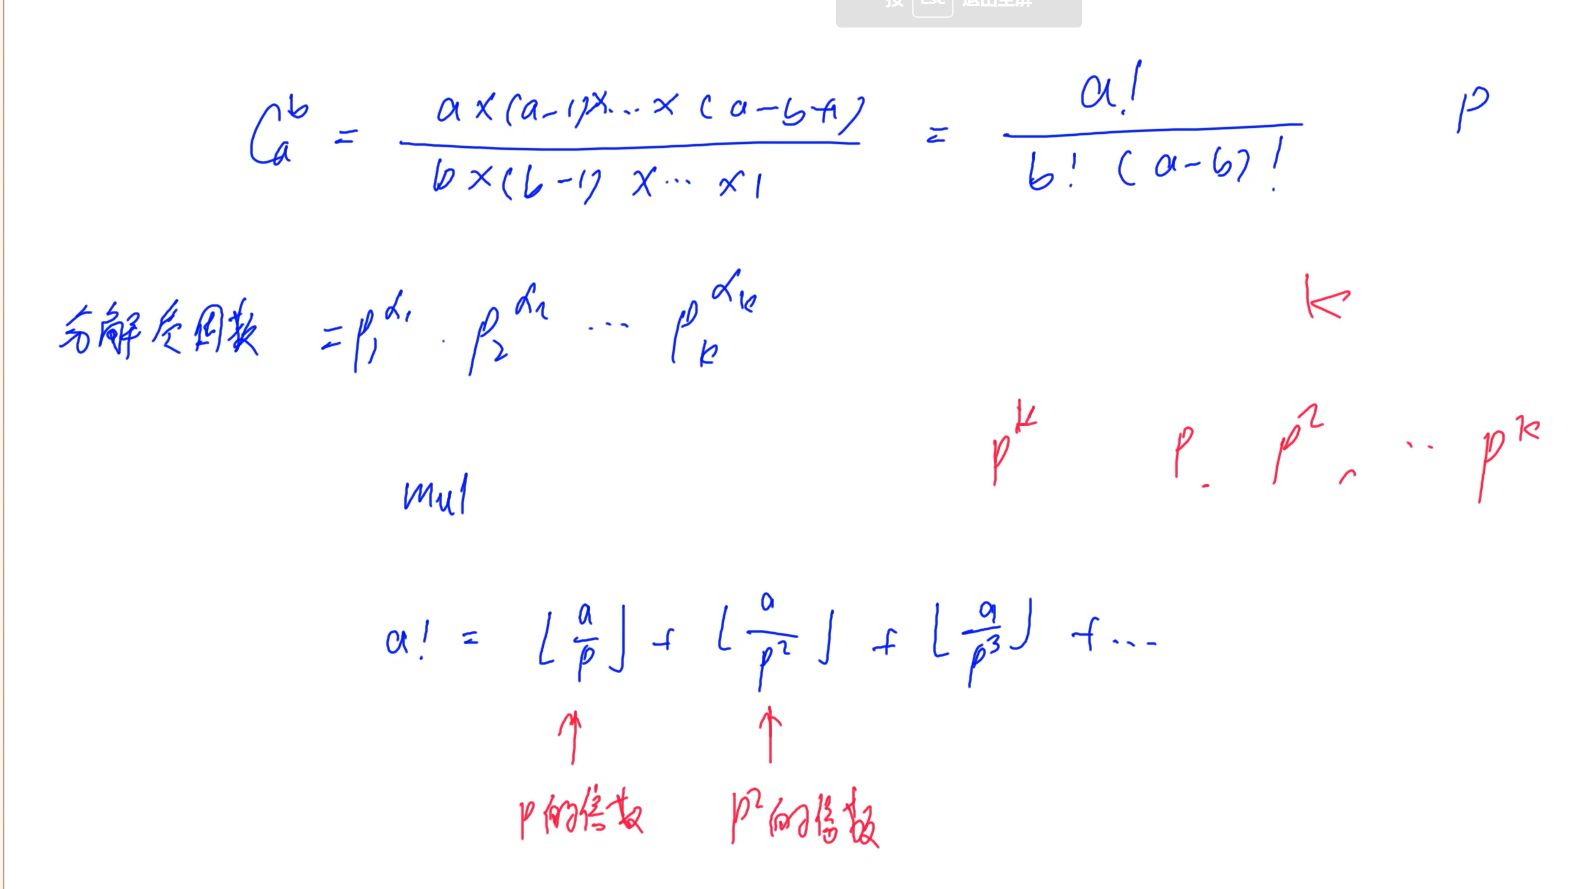 C_a^b = \frac{a×(a-1)×...×(a-b+1)}{b×(b-1)×...×1} = \frac{a!}{b!(a-b)!} P
k
分解质因数 = p_1^{α_1} · p_2^{α_2} ... p_k^{α_k}
p^k p. p^2, ... p^k
mul
a! = ⌊\frac{a}{p}⌋ + ⌊\frac{a}{p^2}⌋ + ⌊\frac{a}{p^3}⌋ + ...
↑ ↑
p的倍数 p^2的倍数